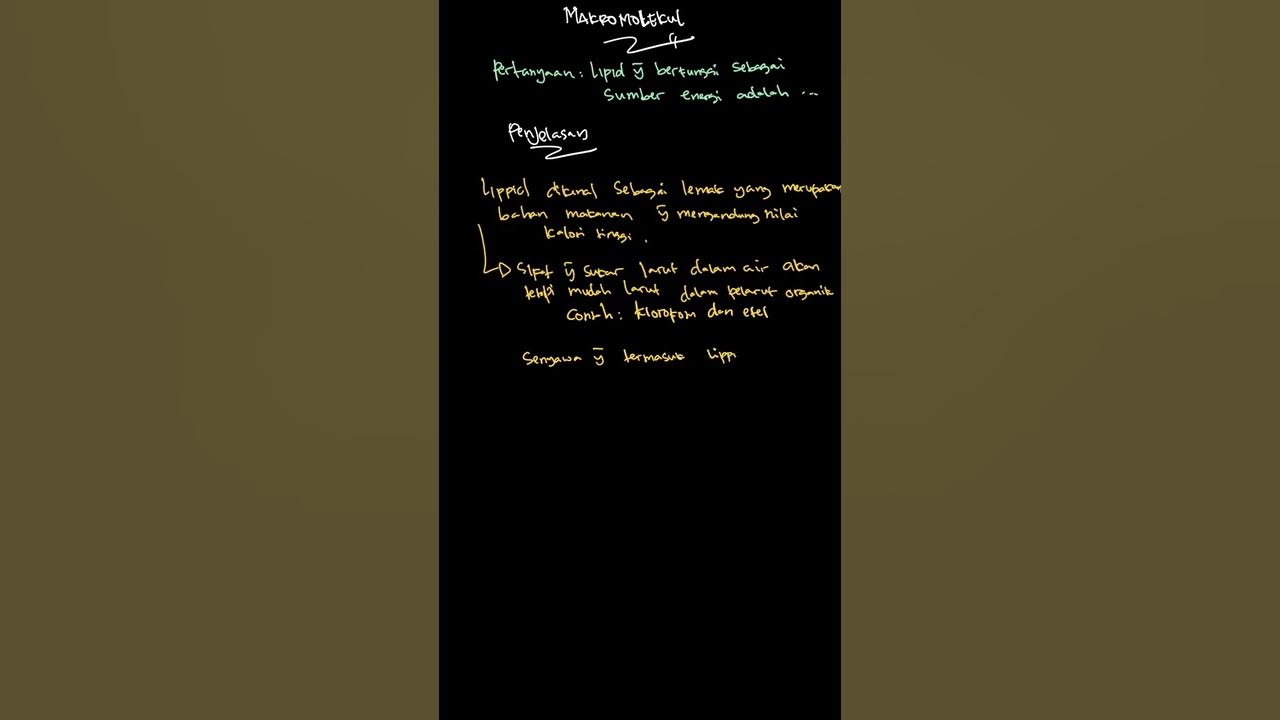 MAKROMOLEKUL
Pertanyaan: Lipid ȳ berfungsi sebagai
Sumber energi adalah ...
Penjelasan
Lippid dikenal sebagai lemak yang merupakan
bahan makanan ȳ mengandung nilai
kalori tinggi.
Sifat ȳ sukar larut dalam air akan
tetapi mudah larut dalam pelarut organik
Contoh: kloroform dan eter
Senyawa ȳ termasuk lipp